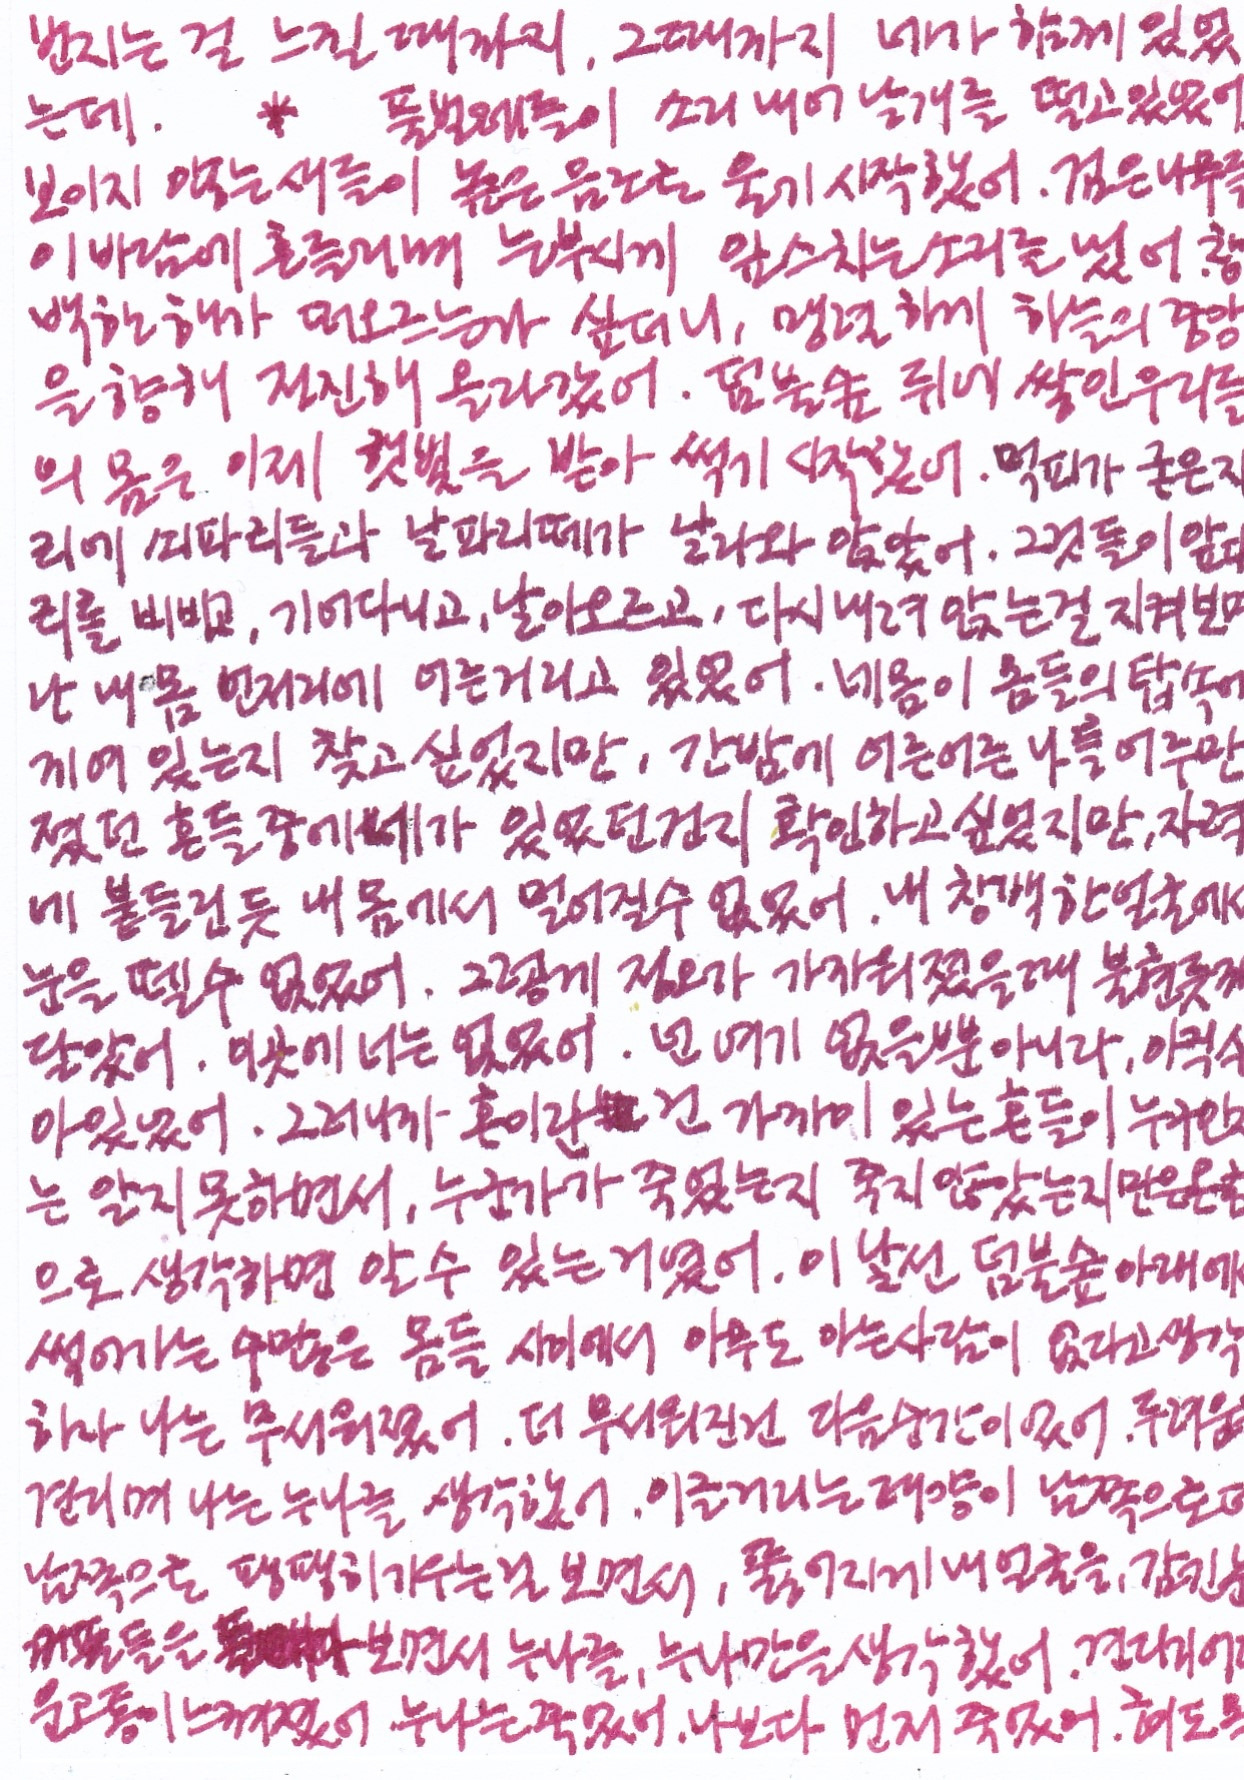 번지는 걸 느낄 때까지, 그때까지 네가 함께 있었
는데. * 풀벌레들이 소리 내어 날개를 떨고있었어
보이지 않는 새들이 높은 음조로 울기 시작했어. 검은나무들
이 바람에 흔들리며 눈부시게 잎스치는소리를 냈어. 창
백한 해가 떠오르는가 싶더니, 맹렬하게 하늘의 중앙
을 향해 전진해 올라갔어. 덤불숲 뒤에 쌓인 우리들
의 몸은 이제 햇빛을 받아 썩기 시작했어. 먹피가 굳은자
리에 쇠파리들과 날파리떼가 날아와 앉았어. 그것들이 앞다
리를 비비고, 기어다니고, 날아오르고, 다시 내려 앉는걸 지켜보며
난 내 몸 언저리에 어른거리고 있었어. 네몸이 몸들의 탑속에
끼여 있는지 찾고 싶었지만, 간밤에 어른어른 나를 어루만
졌던 혼들 중에 네가 있었던건지 확인하고싶었지만, 자력
에 붙들린듯 내 몸에서 멀어질수 없었어. 내 창백한얼굴에서
눈을 뗄수 없었어. 그렇게 정오가 가까워졌을때 불현듯깨
달았어. 이곳에 너는 없었어. 넌 여기 없을뿐 아니라, 아직 살
아있었어. 그러니까 혼이란 건 가까이 있는 혼들이 누구인지
는 알지 못하면서, 누군가가 죽었는지 죽지 않았는지만은온힘
으로 생각하면 알 수 있는 거였어. 이 낯선 덤불숲 아래에서
썩어가는 수많은 몸들 사이에서 아무도 아는사람이 없다고생각
하자 나는 무서워졌어. 더 무서워진건 다음순간이었어. 두려움을
견디며 나는 누나를 생각했어. 이글거리는 태양이 남쪽으로 더
남쪽으로 팽팽히 기우는걸 보면서, 뚫어져라 내 얼굴을, 감긴 눈
꺼풀들을 보면서 누나를, 누나만을 생각했어. 견디기어려
운고통이 느껴졌어. 누나는 죽었어. 나보다 먼저 죽었어. 혀도 목